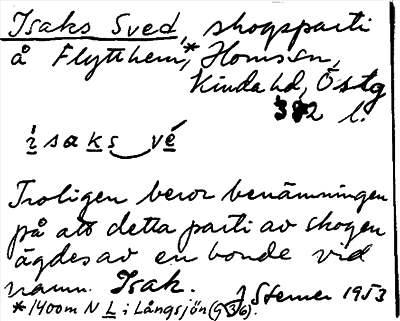 Isaks Sved, skogsparti
å Flytthem,* Hornsen,
Kinda hd, Östg
382 l.
isaks vé
Troligen beror benämningen
på att detta parti av skogen
ägdes av en bonde vid
namn Isak.
J Sterner 1953
*1400m N L i Långsjön (936).